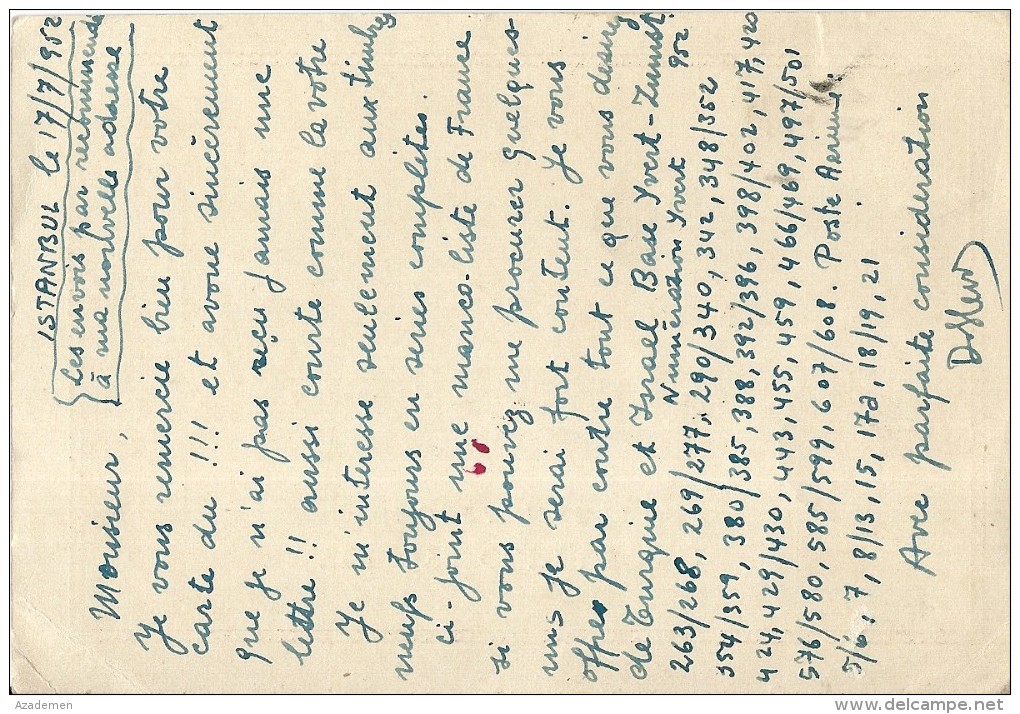 ISTANBUL le 17/7/952
Les envois par recommandé
à ma nouvelle adresse
Monsieur,
Je vous remercie bien pour votre
carte du !!! et avoue sincèrement
que je n'ai pas reçu jamais une
lettre !! aussi courte comme la votre
Je m'interesse seulement aux timbres
neufs toujours en series complètes.
ci-joint une manco-liste de France
si vous pouvez me procurer quelques
uns je serai fort content. Je vous
offre par contre tout ce que vous desirez
de Turquie et Israel Base Yvert-Zumst.
952
Numération Yvert
263/268, 269/277, 290/340, 342, 348/352
354/359, 380/385, 388, 392/396, 398/402, 417, 420
424, 429/430, 443, 455, 459, 466/469, 497/501,
576/580, 585/599, 607/608. Poste Aerienne.
5/6, 7, 8/13, 15, 17a, 18/19, 21
Avec parfaite consideration
Azademen
delcampe.net